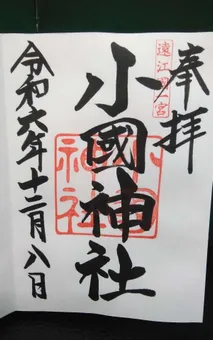 奉拝
遠江国一宮
小國神社
小國神社
令和六年十二月八日